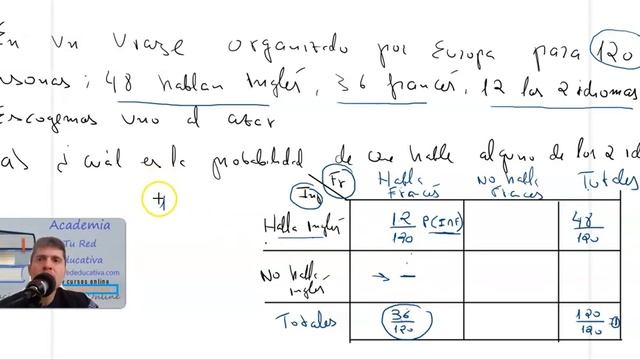 En un viaje organizado por Europa para 120
rsonas, 48 hablan inglés, 36 francés, 12 los 2 idiomas
Escogemos uno al azar
a) ¿cuál es la probabilidad de que hable alguno de los 2 idi
Fr
Ing
Habla Francés
No habla Francés
Totales
Habla Inglés
12/120 P(I∩F)
48/120
No habla inglés
→ –
Totales
36/120
120/120 =1
Academia
Tu Red
ducativa
rededucativa.com
cursos online
Online